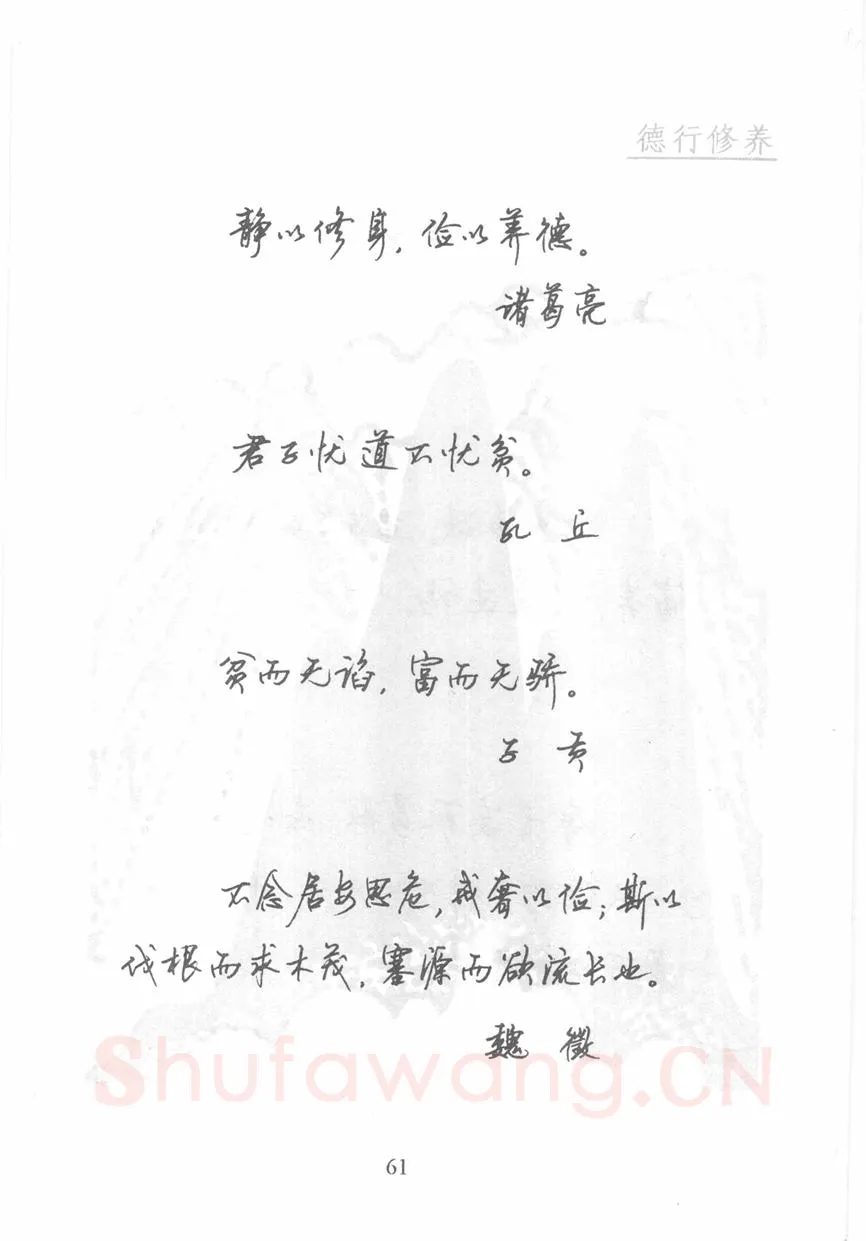 德行修养
静以修身，俭以养德。
诸葛亮
君子忧道不忧贫。
孔 丘
贫而无谄，富而无骄。
子 贡
不念居安思危，戒奢以俭；斯以
伐根而求木茂，塞源而欲流长也。
魏 徵
Shufawang.CN
61